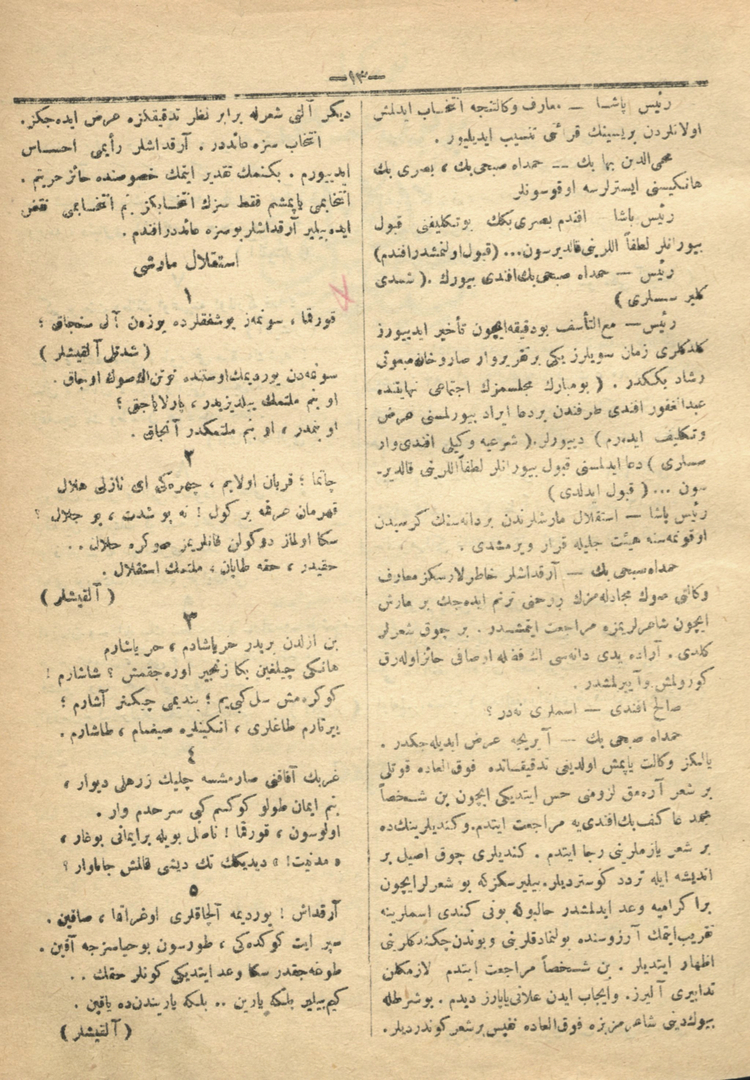 —٩٣—
رئيس پاشا — معارف وكالتنجه انتخاب ايدلمش
اولانلردن بريسينك قرائى تنسيب ايديليور .
محى الدين بها بك — حمدالله صبحى بك ، بصرى بك
هانكيسنى ايسترلرسه اوقوسونلر
رئيس پاشا — افندم بصرى بكك بوتكليفنى قبول
بيورانلر لطفاً اللرينى قالديرسون... (قبول اولنمشدر افندم)
رئيس — حمدالله صبحى بك افندى بيورك . ( شمدى
كلير سسلرى )
رئيس — مع التأسف بودقيقه ايچون تأخير ايدييورز
كلدكلرى زمان سويلرز يكى برتقرير وار صاروخان مبعوثى
رشاد بككدر . ( بومبارك مجلسمزك اجتماعى نهايتنده
عبدالغفور افندى طرفندن بردعا ايراد بيورلمسنى عرض
وتكليف ايدەرم ) دييورلر . ( شرعيه وكيلى افندى وار
صدالرى ) دعا ايدلمسنى قبول بيورانلر لطفاً اللرينى قالدير-
سون ... ( قبول ايدلدى )
رئيس پاشا — استقلال مارشلرندن بردانه‌سنك كرسيدن
اوقونمه‌سنه هيئت جليله قرار ويرمشدى .
حمدالله صبحى بك — آرقداشلر خاطرلارسكز معارف
وكالتى صوك مجادله‌مزك روحنى ترنم ايده‌جك بر مارش
ايچون شاعرلريمزه مراجعت ايتمشدر . بر چوق شعرلر
كلدى . آراده يدى دانه‌سى اك فضله اوصافى حائز اوله‌رق
كورولمش وآييرلمشدر .
صالح افندى — اسملرى نه‌در ؟
حمدالله صبحى بك — آيريجه عرض ايديله‌جكدر .
يالكز وكالت ياپمش اولدينى تدقيقاتده فوق العاده قوتلى
بر شعر آره‌مق لزومنى حس ايتديكى ايچون بن شخصاً
محمد عاكف بك افندى‌يه مراجعت ايتدم . وكنديلرينك‌ده
بر شعر يازملرينى رجا ايتدم . كنديلرى چوق اصيل بر
انديشه ايله تردد كوسترديلر . بيليرسكزكه بو شعرلر ايچون
برا كراميه وعد ايدلمشدر حالبوكه بونى كندى اسملرينه
تقريب ايتمك آرزوسنده بولنمادقلرينى وبوندن چكندكلرينى
اظهار ايتديلر . بن شخصاً مراجعت ايتدم لازمكلن
تدابيرى آليرز . وايجاب ايدن علانى ياپارز ديدم . بوشرطله
بيوك دينى شاعرمز بزه فوق العاده نفيس بر شعر كوندرديلر .
ديكر آلتى شعرله برابر نظر تدقيقكزه عرض ايده‌جكز .
انتخاب سزه عائددر . آرقداشلر رأيمى احساس
ايدييورم . بكنمك تقدير ايتمك خصوصنده حائز حريتم .
انتخابمى ياپمشم فقط سزك انتخابكز بنم انتخابمى نقض
ايده‌بيلير آرقداشلر بو سزه عائددر افندم .
استقلال مارشى
١
قورقما ، سونمه‌ز بوشفقلرده يوزه‌ن آل سنجاق ؛
( شدتلى آلقيشلر )
سونمه‌دن يورديمك اوستنده توتن اك صوك اوجاق .
او بنم ملتمك ييلديزيدر ، پارلاياجق ؛
او بنمدر ، او بنم ملتمكدر آنجاق .
٢
چاتما ؛ قربان اولايم ، چهره‌كى اى نازلى هلال
قهرمان عرقمه بر كول ! نه بو شدت ، بو جلال ؟
سكا اولماز دوكولن قانلريمز صوكره حلال . .
حقيدر ، حقه طاپان ، ملتمك استقلال .
( آلقيشلر )
٣
بن ازلدن بريدر حر ياشادم ، حر ياشارم
هانكى چيلغين بكا زنجير اوره‌جقمش ؟ شاشارم !
كوكره‌مش سل كبى‌يم ؛ بنديمى چيكنر آشارم ؛
ييرتارم طاغلرى ، انكينلره صيغمام ، طاشارم .
٤
غربك آفاقنى صارمشسه چليك زرهلى ديوار ،
بنم ايمان طولو كوكسم كبى سرحدم وار .
اولوسون ، قورقما ! ناصل بويله بر ايمانى بوغار ،
« مدنيت ! » ديديكك تك ديشى قالمش جاناوار ؟
٥
آرقداش ! يورديمه آلچاقلرى اوغراتما ، صاقين .
سپر ايت كوكده‌كى ، طورسون بو حياسزجه آقين .
طوغه‌جقدر سكا وعد ايتديكى كونلر حقك . .
كيم بيلير بلكه يارين .. بلكه ياريندن ده ياقين .
( آلقيشلر )